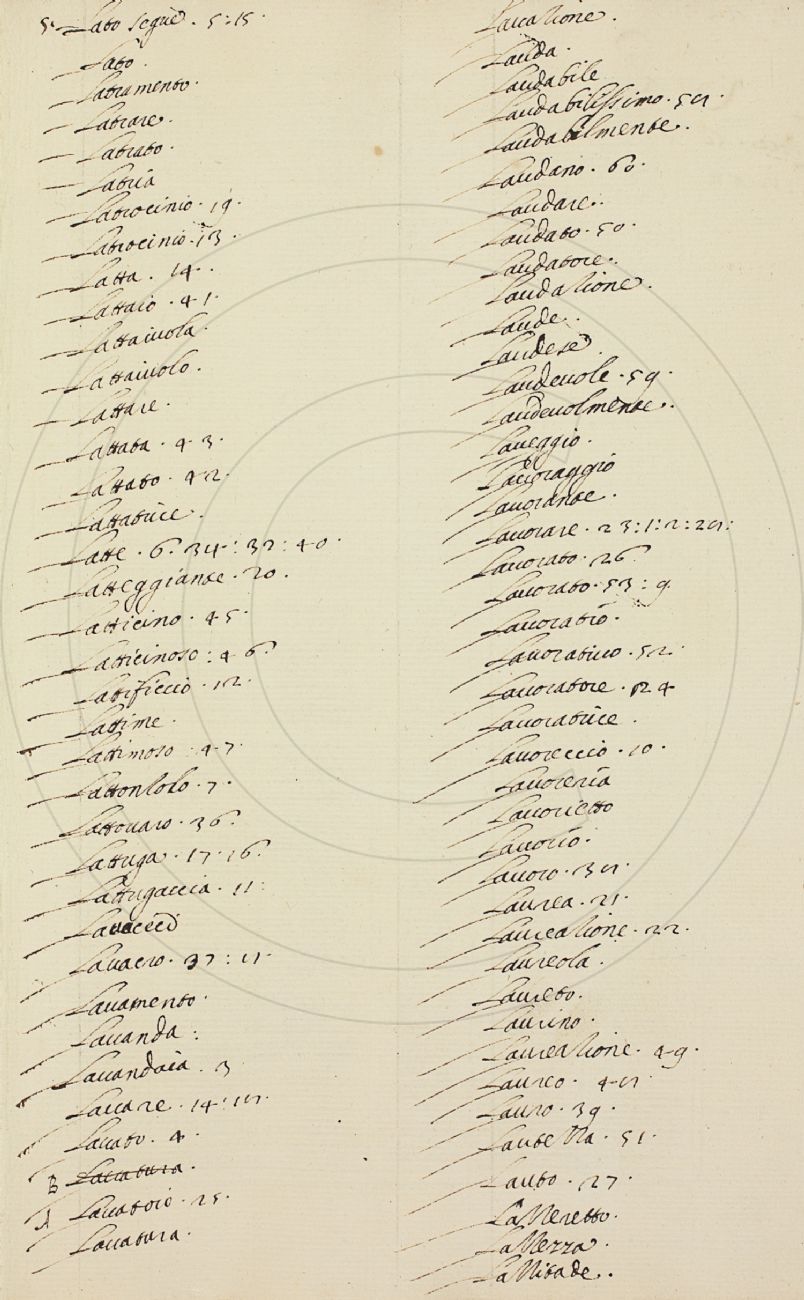 5. Lato segue. 5:15.
Lato.
Latramento.
Latrare.
Latrato.
Latria
Latrocinio. 19.
Latrocinio. 13.
Latta. 14.
Lattaio. 41.
Lattaiuola.
Lattaiuolo.
Lattare.
Lattata. 43.
Lattato. 42.
Lattatrice.
Latte. 6. 34: 32: 40.
Latteggiante. 20.
Latticino. 45.
Latticinoso: 46.
Lattificcio. 12.
Lattime.
Lattimoso: 47.
Lattonzolo. 7.
Lattovaro. 36.
Lattuga. 17. 16.
Lattugaccia. 11:
Lavaceci
Lavacro. 37: 11.
Lavamento.
Lavanda:
Lavandaia. 3
Lavare. 14:
Lavato. 4.
B Lavatura.
A Lavatoio. 25.
Lavatura.
Lauda.
Laudabile
Laudabilissimo.
Laudabilmente.
Laudano. 60.
Laudare.
Laudato. 50.
Laudatore.
Laudazione.
Laude.
Laudese.
Laudevole. 59.
Laudevolmente.
Laveggio.
Lavoraggio
Lavorante.
Lavorare. 23:1:2:
Lavorato. 26
Lavorato. 53: 9.
Lavoratio.
Lavorativo. 52.
Lavoratore. 24
Lavoratrice.
Lavoreccio. 10.
Lavoreria
Lavorietto
Lavorio.
Lavoro.
Laurea. 21.
Laureazione. 22.
Laureola.
Laureto.
Laurino.
Laureazione. 49.
Laureo.
Lauro. 39.
Lautezza. 51.
Lauto. 27.
Lazzeretto.
Lazzezza.
Lazzitade.